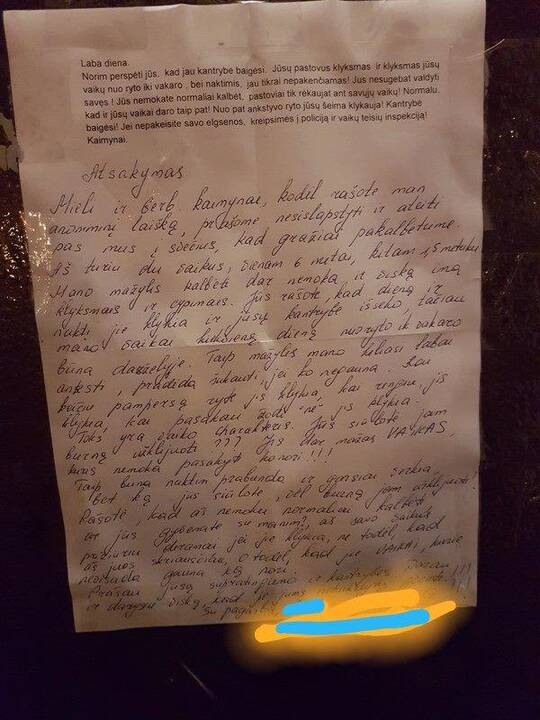 Laba diena.
Norim perspėti jūs, kad jau kantrybė baigėsi. Jūsų pastovus klyksmas ir klyksmas jūsų
vaikų nuo ryto iki vakaro , bei naktimis, jau tikrai nepakenčiamas! Jus nesugebat valdyti
savęs ! Jūs nemokate normaliai kalbėt, pastoviai tik rėkaujat ant savųjų vaikų! Normalu,
kad ir jūsų vaikai daro taip pat! Nuo pat ankstyvo ryto jūsų šeima klykauja! Kantrybė
baigėsi! Jei nepakeisite savo elgsenos, kreipsimės į policiją ir vaikų teisių inspekciją!
Kaimynai.
Atsakymas
Mieli ir gerb. kaimynai, kodėl rašote man
anoniminį laišką, prašome nesislapstyti ir ateiti
pas mus į svečius, kad gražiai pakalbėtume.
Aš turiu du vaikus, vienam 6 metai, kitam
Mano mažylis kalbėti dar nemoka ir viską ima
klyksmais ir cypimais. Jūs rašote, kad dieną ir
naktį jie klykia ir jūsų kantrybė išseko, tačiau
mano vaikai kiekvieną dieną nuo ryto ik vakaro
būna darželyje. Taip mažylis mano keliasi labai
anksti, pradeda šūkauti, jei ko negauna. Kai
keičiu pampersą ryte jis klykia, kai rengiu, jis
klykia, kai pasakau žodį "ne" jis klykia.
Toks yra vaiko charakteris. Jūs siūlote jam
burną užklijuoti??? Jis dar mažas VAIKAS,
kuris nemoka pasakyti ko nori!!!
Taip būna naktim prabunda ir garsiai verkia
bet ką jūs siūlote, vėl burną jam užklijuoti?
Rašote, kad aš nemoku normaliai kalbėti
ar jūs gyvenate su manim?, aš savo vaikus
prižiūriu deramai jei jie klykia, ne todėl, kad
aš juos skriaudžiu, o todėl, kad jie VAIKAI, kurie
gauna ką nori.
Prašau jūsų supratingumo ir kantrybės.
ir darysiu viską, kad jie jums
Su pagarba